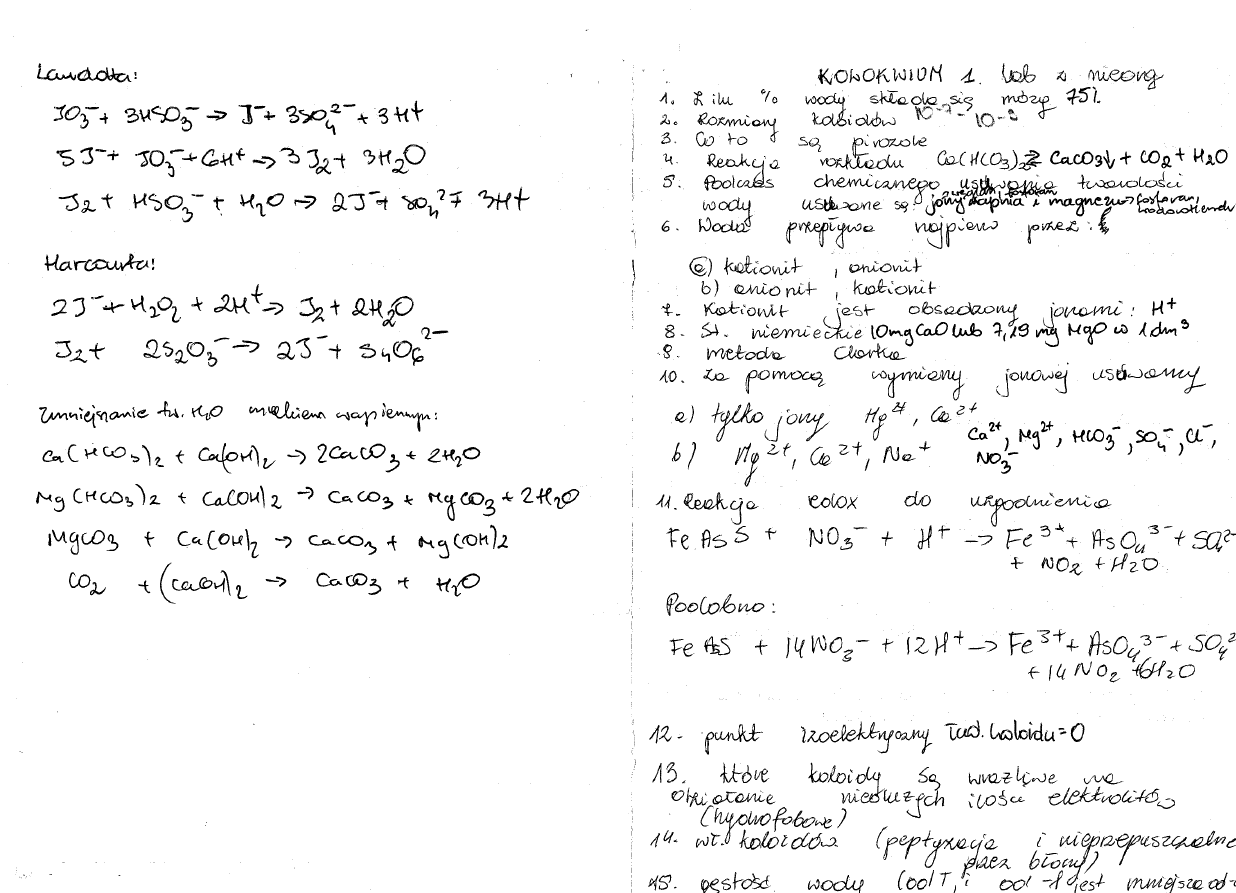 Landolta:
JO₃⁻ + 3HSO₃⁻ → J⁻ + 3SO₄²⁻ + 3H⁺
5J⁻ + JO₃⁻ + 6H⁺ → 3J₂ + 3H₂O
J₂ + HSO₃⁻ + H₂O → 2J⁻ + SO₄²⁻ + 3H⁺
Harcourta:
2J⁻ + H₂O₂ + 2H⁺ → J₂ + 2H₂O
J₂ + 2S₂O₃⁻ → 2J⁻ + S₄O₆²⁻
Zmniejszanie tw. H₂O mlekiem wapiennym:
Ca(HCO₃)₂ + Ca(OH)₂ → 2CaCO₃ + 2H₂O
Mg(HCO₃)₂ + Ca(OH)₂ → CaCO₃ + MgCO₃ + 2H₂O
MgCO₃ + Ca(OH)₂ → CaCO₃ + Mg(OH)₂
CO₂ + (Ca(OH)₂ → CaCO₃ + H₂O
KOLOKWIUM 1. lab z nieorg
1. Z ilu % wody składa się mózg 75%
2. Rozmiary koloidów 10⁻⁷ - 10⁻⁹
3. Co to są pirozole
4. Reakcja rozkładu Ca(HCO₃)₂ ⇄ CaCO₃↓ + CO₂ + H₂O
5. Podczas chemicznego usuwania twardości
wody usuwane są: jony wapnia i magnezu →
6. Woda przepływa najpierw przez:
a) kationit, anionit
b) anionit, kationit
7. Kationit jest obsadzony jonami: H⁺
8. St. niemieckie 10mg CaO lub 7,19 mg MgO w 1dm³
9. metoda Clarka
10. Za pomocą wymiany jonowej usuwamy
a) tylko jony Mg²⁺, Ca²⁺
b) Mg²⁺, Ca²⁺, Na⁺
Ca²⁺, Mg²⁺, HCO₃⁻, SO₄⁻, Cl⁻,
NO₃⁻
11. Reakcja redox do uzgodnienia
FeAsS + NO₃⁻ + H⁺ → Fe³⁺ + AsO₄³⁻ + SO₄²⁻
+ NO₂ + H₂O
Podobno:
FeAsS + 14NO₃⁻ + 12H⁺ → Fe³⁺ + AsO₄³⁻ + SO₄²
+ 14NO₂ + 6H₂O
12. punkt izoelektryczny ład. koloidu = 0
13. które koloidy są wrażliwe na
działanie nieduzych ilości elektrolitów
(hydrofobowe)
14. wł. koloidów (peptyzacja i nieprzepuszczalne
przez błony)
15. gęstość wody (od T, i od lodu jest mniejsza od